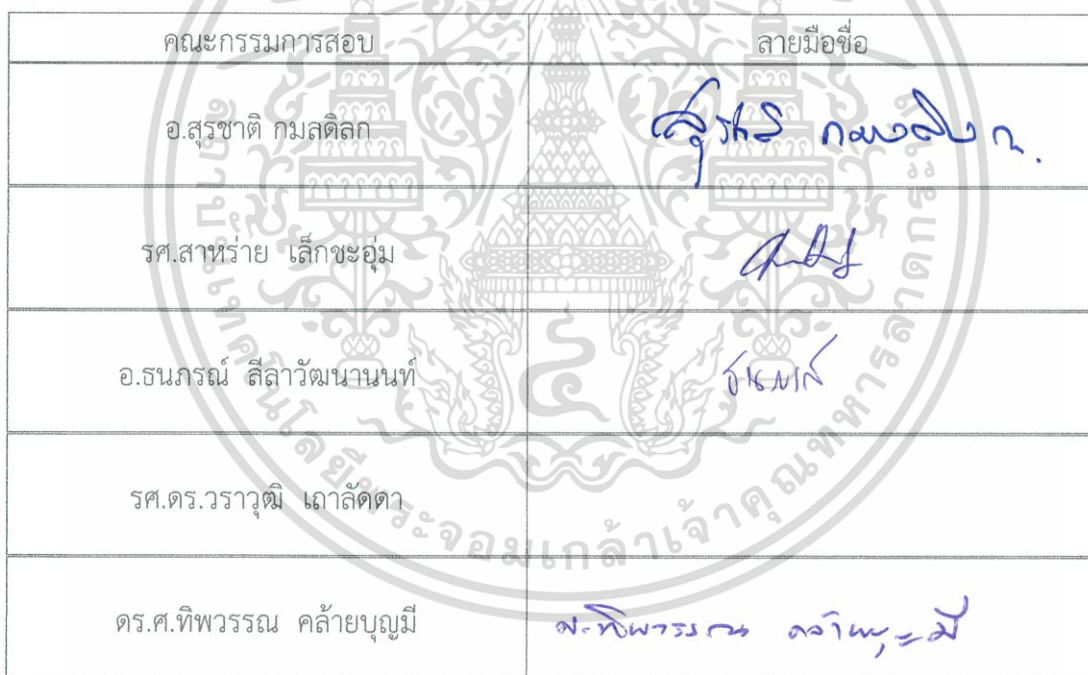 คณะกรรมการสอบ ลายมือชื่อ
อ.สุรชาติ กมลดิลก สุรชาติ กมลดิลก
รศ.สาหร่าย เล็กชะอุ่ม
อ.ธนภรณ์ ลีลาวัฒนานนท์ ธนภรณ์
รศ.ดร.วราวุฒิ เถาลัดดา
ดร.ศ.ทิพวรรณ คล้ายบุญมี ศ.ทิพวรรณ คล้ายบุญมี
สถาบันเทคโนโลยีพระจอมเกล้าเจ้าคุณทหารลาดกระบัง